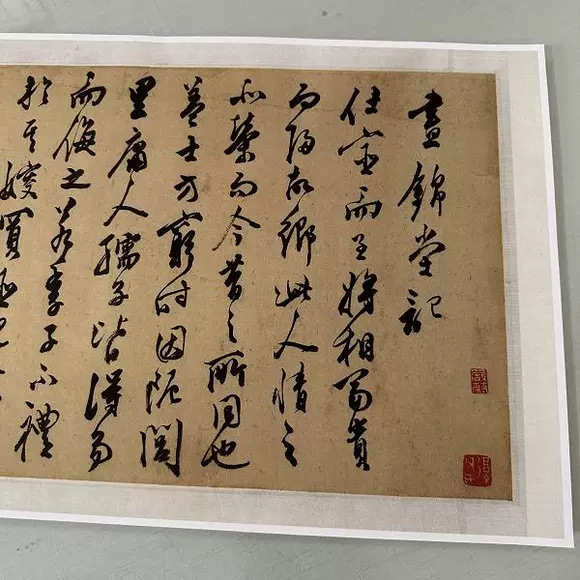 晝錦堂記
仕宦而至將相富貴
而歸故鄉此人情之
所榮而今昔之所同也
蓋士方窮時困阨閭
里庸人孺子皆得易
而侮之若季子不禮
於其嫂買臣見